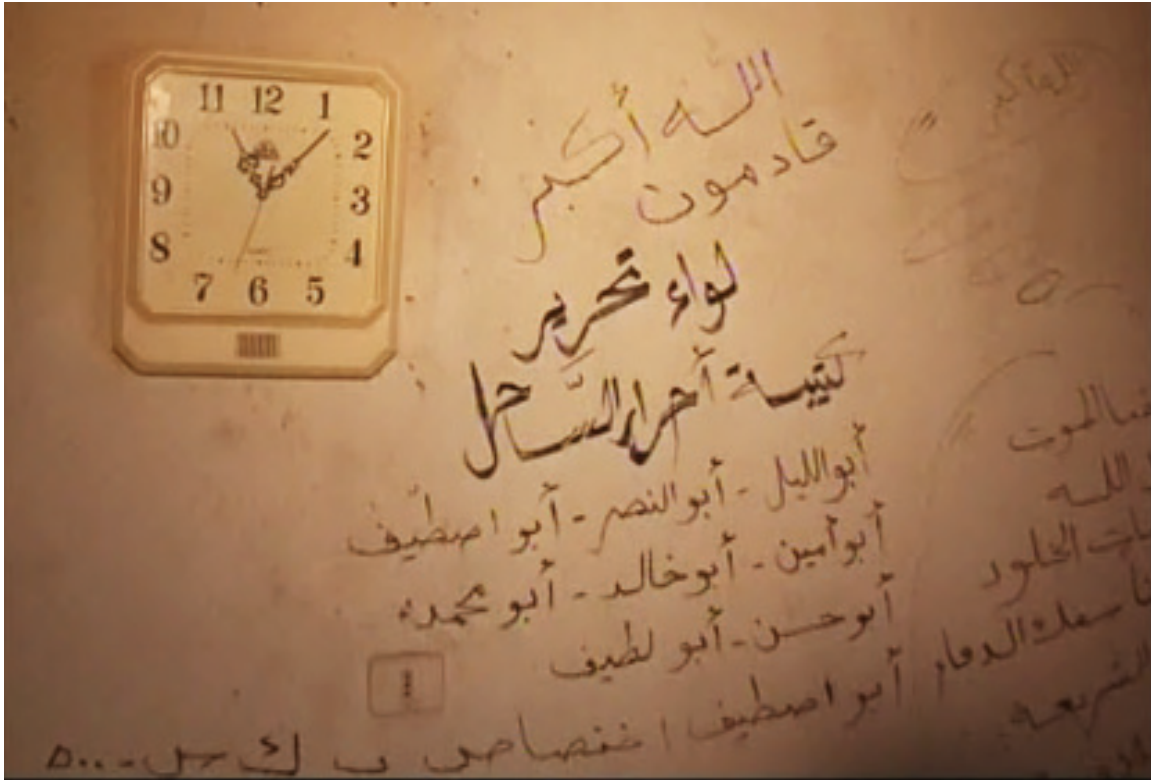 11 12 1
10 2
9 3
8 4
7 6 5
الله أكبر
قادمون
لواء تحرير
كتيبة أحرار السَّاحل
أبو الليل - أبو النصر - أبو اصطيف
أبو أمين - أبو خالد - أبو محمد
أبو حسن - أبو لطيف
أبو اصطيف اختصاص ب ك س
الله أكبر
الموت
الله
الخلود
الدمار
الشريعه